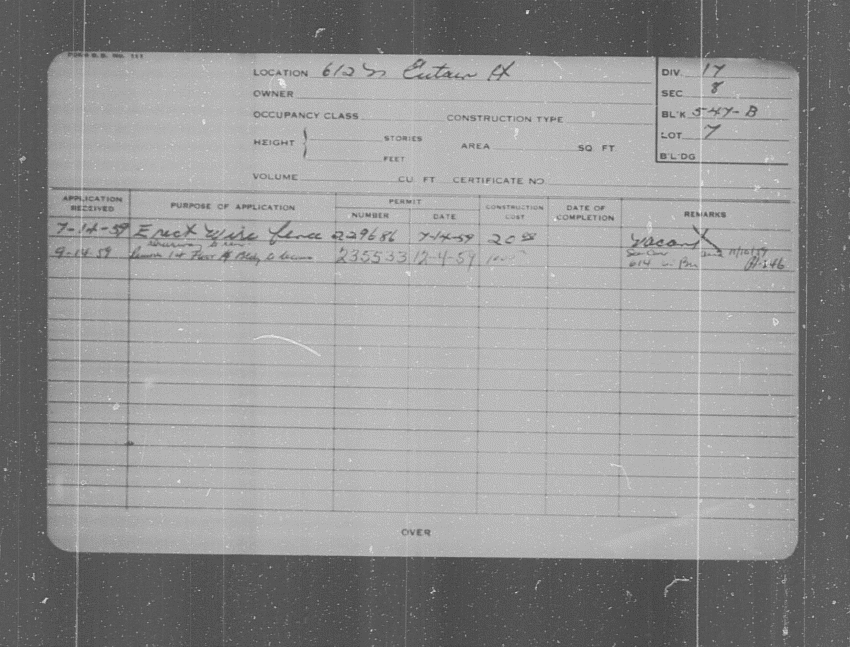 FORM B.B. No. 111
LOCATION 612 N Eutaw St
OWNER
OCCUPANCY CLASS CONSTRUCTION TYPE
HEIGHT STORIES FEET AREA SQ FT
VOLUME CU FT CERTIFICATE NO
DIV. 17
SEC 8
BL'K 547-B
LOT 7
B'L'DG
APPLICATION RECEIVED PURPOSE OF APPLICATION PERMIT NUMBER DATE CONSTRUCTION COST DATE OF COMPLETION REMARKS
7-14-59 Erect Wire fence 229686 7-14-59 20 Vacant
9-14-59 1st Floor of Bldg 235533 12-4-59 614
OVER